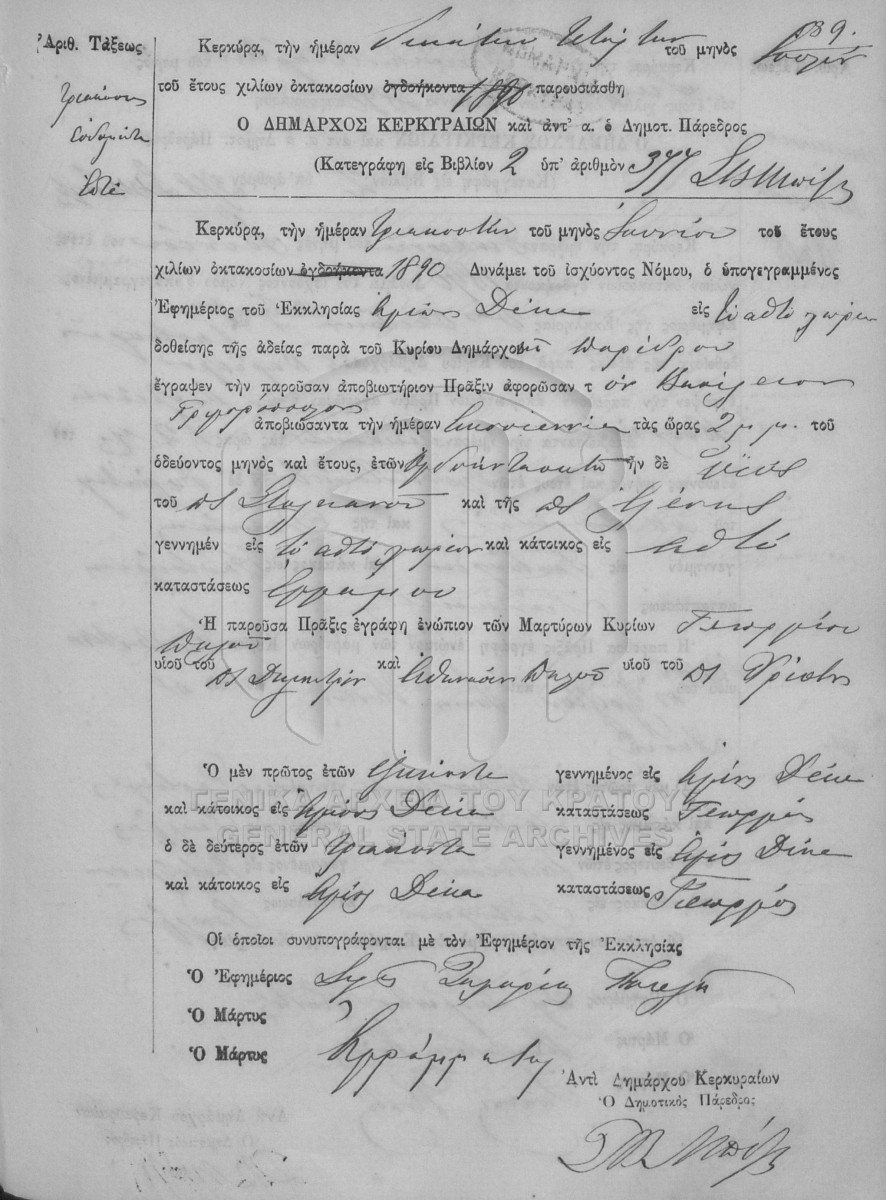 139.
Ἀριθ. Τάξεως
τριακόσια
ἑβδομήντα
ἑπτά
Κερκύρα, τὴν ἡμέραν δεκάτην τετάρτην τοῦ μηνὸς
τοῦ ἔτους χιλίων ὀκτακοσίων ὀγδοήκοντα 1890 παρουσιάσθη
Ο ΔΗΜΑΡΧΟΣ ΚΕΡΚΥΡΑΙΩΝ καὶ ἀντ' α. ὁ Δημοτ. Πάρεδρος
(Κατεγράφη εἰς Βιβλίον 2 ὑπ' ἀριθμὸν 377
Κερκύρα, τὴν ἡμέραν τριακοστὴν τοῦ μηνὸς Ἰουνίου τοῦ ἔτους
χιλίων ὀκτακοσίων ὀγδοήκοντα 1890 Δυνάμει τοῦ ἰσχύοντος Νόμου, ὁ ὑπογεγραμμένος
Ἐφημέριος τοῦ Ἐκκλησίας Ἁγίους Δέκα εἰς τὸ αὐτὸ χωρίον
δοθείσης τῆς ἀδείας παρὰ τοῦ Κυρίου Δημάρχου Παρέδρου
ἔγραψεν τὴν παροῦσαν ἀποβιωτήριον Πρᾶξιν ἀφορῶσαν τ ὸν Βασίλειον
Γρηγορόπουλον ἀποβιώσαντα τὴν ἡμέραν εἰκοσιεννέα τὰς ὥρας 2 μ.μ. τοῦ
ὁδεύοντος μηνὸς καὶ ἔτους, ἐτῶν ὀγδοήντα ὀκτὼ ἦν δὲ υἱὸς
τοῦ πτ Στυλιανοῦ καὶ τῆς πτ Ἑλένης
γεννημέν εἰς τὸ αὐτὸ χωρίον καὶ κάτοικος εἰς αὐτὸ
καταστάσεως
Ἡ παροῦσα Πρᾶξις ἐγράφη ἐνώπιον τῶν Μαρτύρων Κυρίων Γεωργίου
υἱοῦ τοῦ πτ Δημητρίου καὶ Ἀθανασίου υἱοῦ τοῦ πτ Χρίστου
Ὁ μὲν πρῶτος ἐτῶν ἑξήκοντα γεννημένος εἰς Ἁγίους Δέκα
καὶ κάτοικος εἰς Ἁγίους Δέκα καταστάσεως Γεωργός
ὁ δὲ δεύτερος ἐτῶν τριάκοντα γεννημένος εἰς Ἁγίους Δέκα
καὶ κάτοικος εἰς Ἁγίους Δέκα καταστάσεως Γεωργός
Οἱ ὁποῖοι συνυπογράφονται μὲ τὸν Ἐφημέριον τῆς Ἐκκλησίας
Ὁ Ἐφημέριος
Ὁ Μάρτυς
Ὁ Μάρτυς Ἀγράμματοι
Ἀντὶ Δημάρχου Κερκυραίων
Ὁ Δημοτικὸς Πάρεδρος
ΓΕΝΙΚΑ ΑΡΧΕΙΑ ΤΟΥ ΚΡΑΤΟΥΣ
GENERAL STATE ARCHIVES